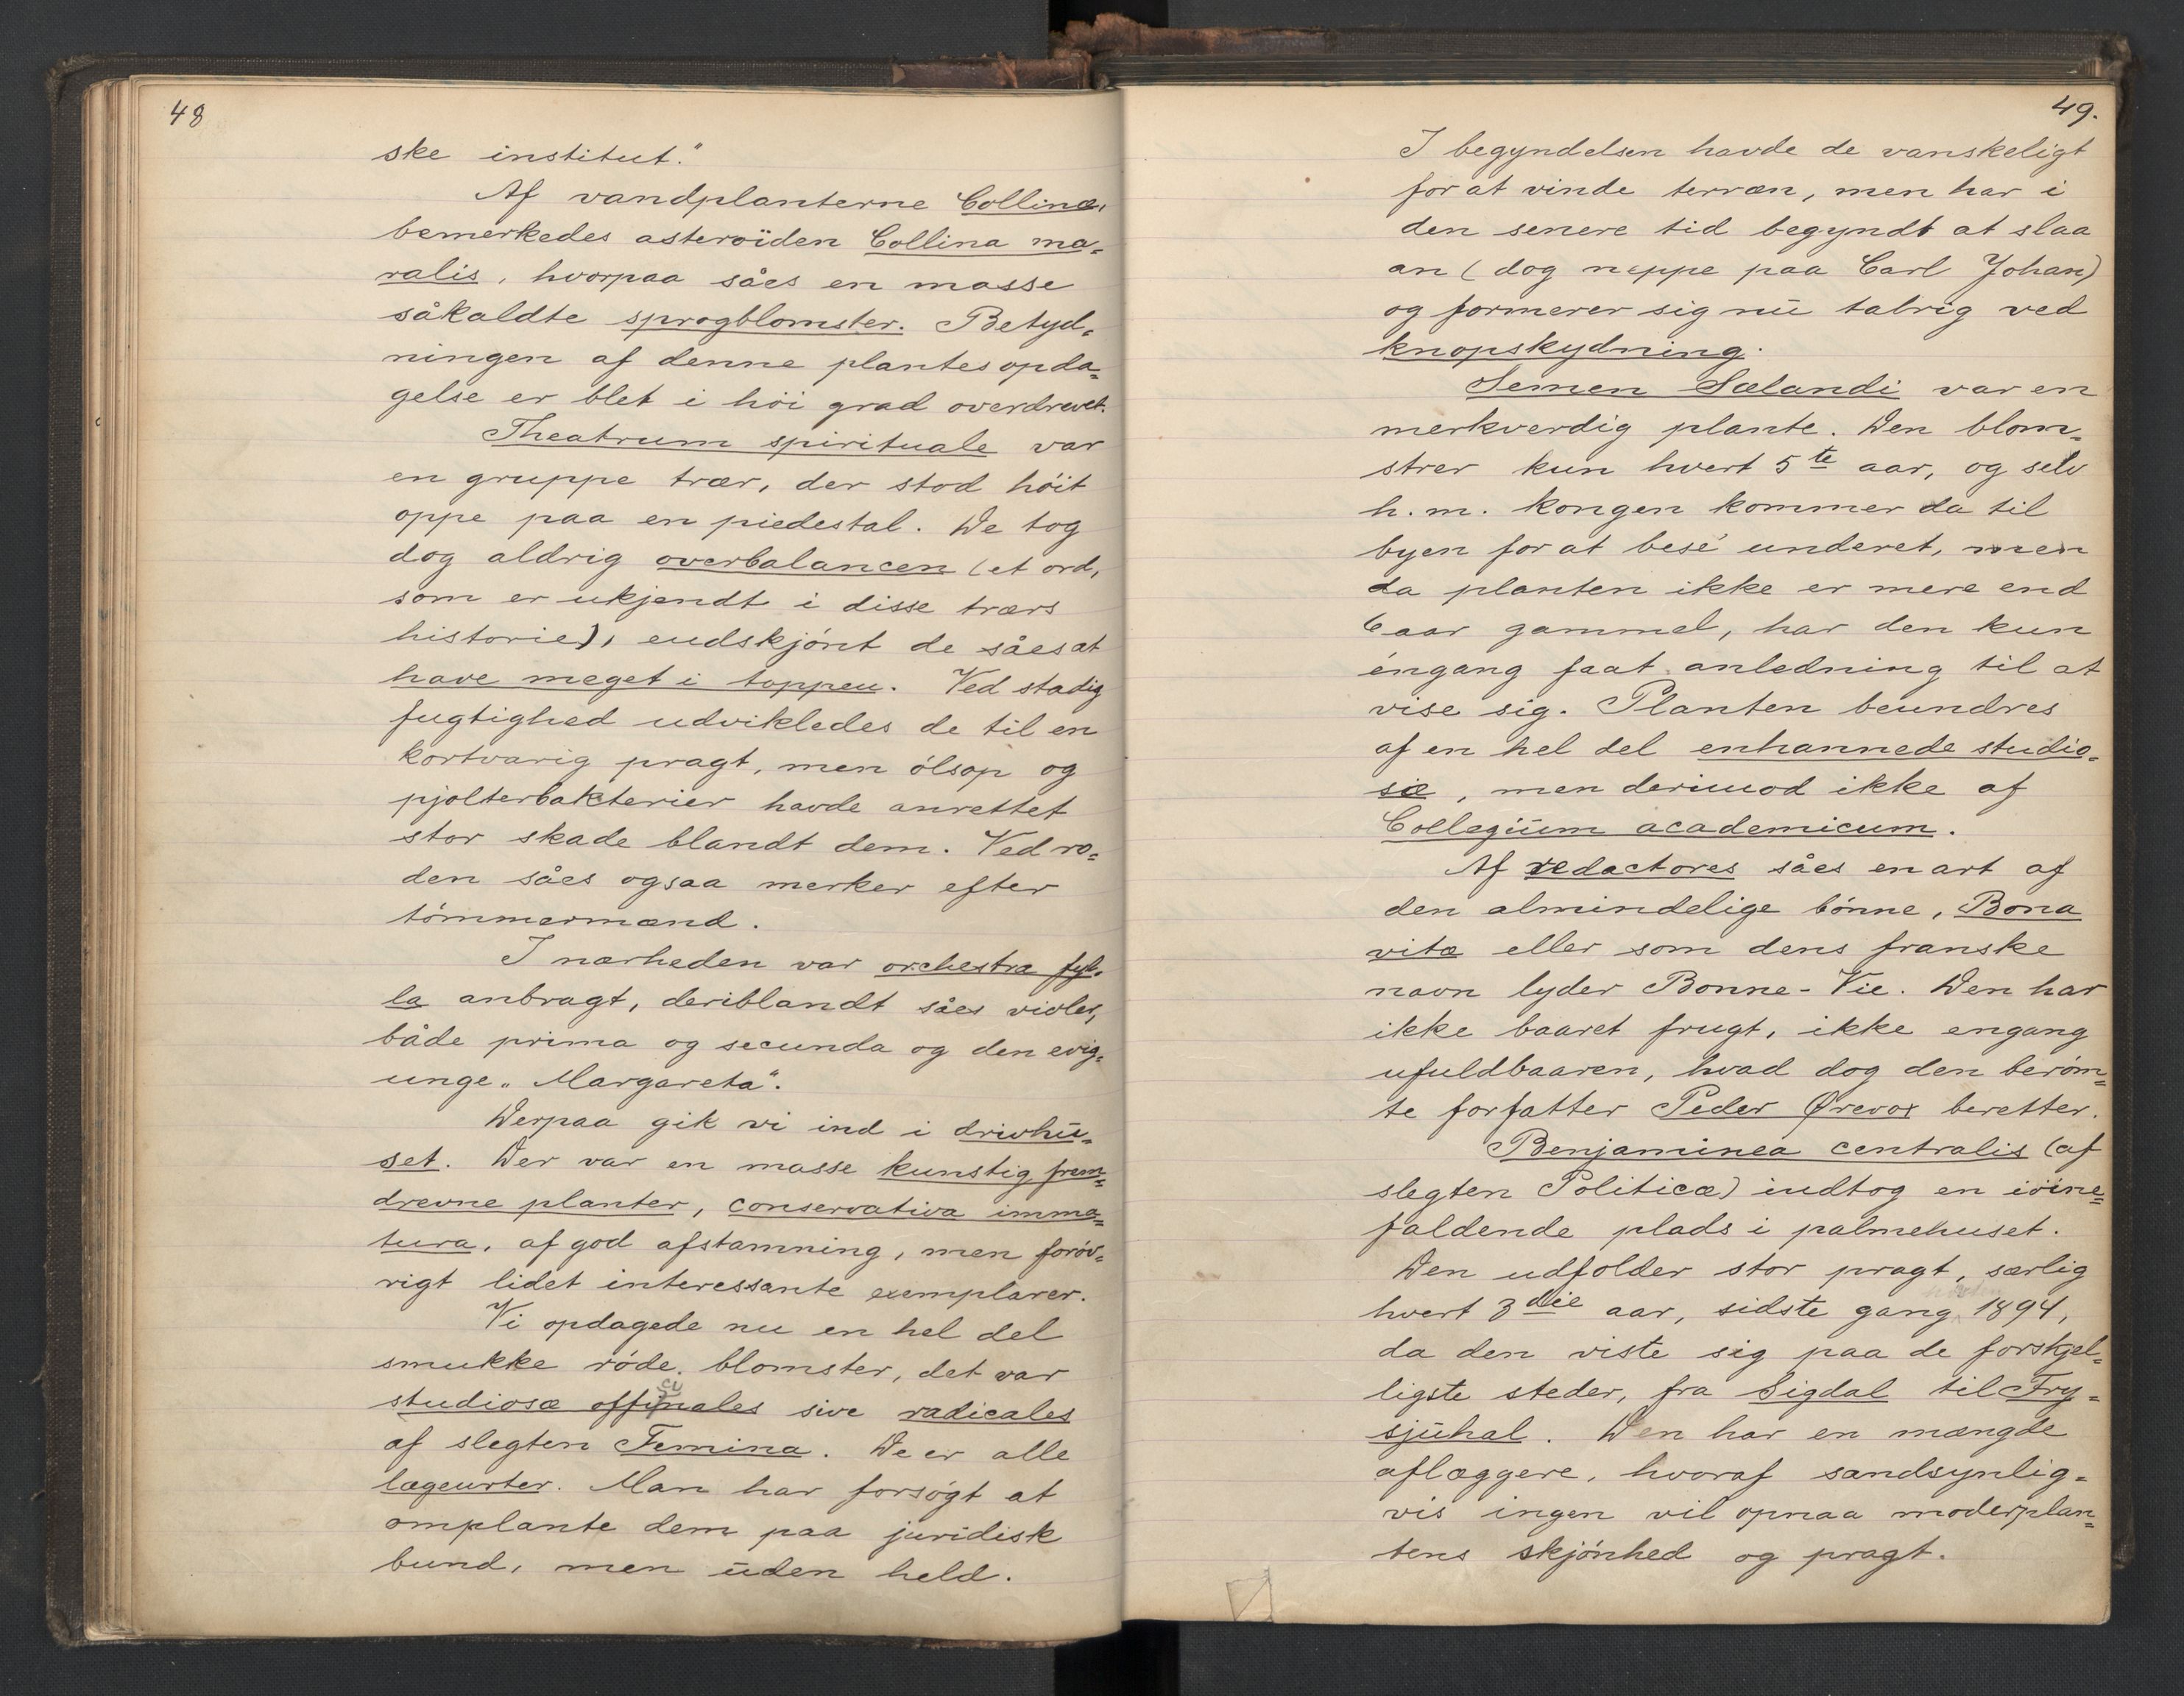 48
ske institut."
Af vandplanterne Collinæ,
bemerkedes asteroïden Collina ma=
ralis, hvorpaa såes en masse
såkaldte sprogblomster. Betyd=
ningen af denne plantes opda=
gelse er blet i höi grad overdrevet.
Theatrum spirituale var
en gruppe trær, der stod höit
oppe paa en piedestal. De tog
dog aldrig overbalancen (et ord,
som er ukjendt i disse trærs
historie), endskjönt de såes at
have meget i toppen. Ved stadig
fugtighed udvikledes de til en
kortvarig pragt, men ölsop og
pjolterbakterier havde anrettet
stor skade blandt dem. Ved ro=
den såes ogsaa merker efter
tömmermænd.
I nærheden var orchestra fyl=
la anbragt, deriblandt såes violer,
både prima og secunda og den evig=
unge "Margareta".
Derpaa gik vi ind i drivhu=
set. Der var en masse kunstig frem=
drevne planter, conservativa imma=
tura, af god afstamning, men foröv=
rigt lidet interessante exemplarer.
Vi opdagede nu en hel del
smukke röde blomster, det var
studiosæ officinales sive radicales
af slegten Femina. De er alle
lægeurter. Man har forsögt at
omplante dem paa juridisk
bund, men uden held.
49.
I begyndelsen havde de vanskeligt
for at vinde terræn, men har i
den senere tid begyndt at slaa
an (dog neppe paa Carl Johan)
og formerer sig nu talrig ved
knopskydning.
Semen Sælandi var en
merkverdig plante. Den blom=
strer kun hvert 5te aar, og selv
h. m. kongen kommer da til
byen for at besé underet, men
da planten ikke er mere end
6 aar gammel, har den kun
éngang faat anledning til at
vise sig. Planten beundres
af en hel del enhannede studio=
siæ, men derimod ikke af
Collegium academicum.
Af redactores såes en art af
den almindelige bönne, Bona
vita eller som dens franske
navn lyder Bonne-Vie. Den har
ikke baaret frugt, ikke engang
ufuldbaaren, hvad dog den beröm=
te forfatter Peder Ørevox beretter.
Benjaminea centralis (af
slegten Politicæ) indtog en iöine=
faldende plads i palmehuset.
Den udfolder stor pragt, særlig
hvert 3die aar, sidste gang 1894,
da den viste sig paa de forskjel=
ligste steder, fra Sigdal til Fry=
sjuhal. Den har en mængde
aflæggere, hvoraf sandsynlig=
vis ingen vil opnaa moderplan=
tens skjönhed og pragt.